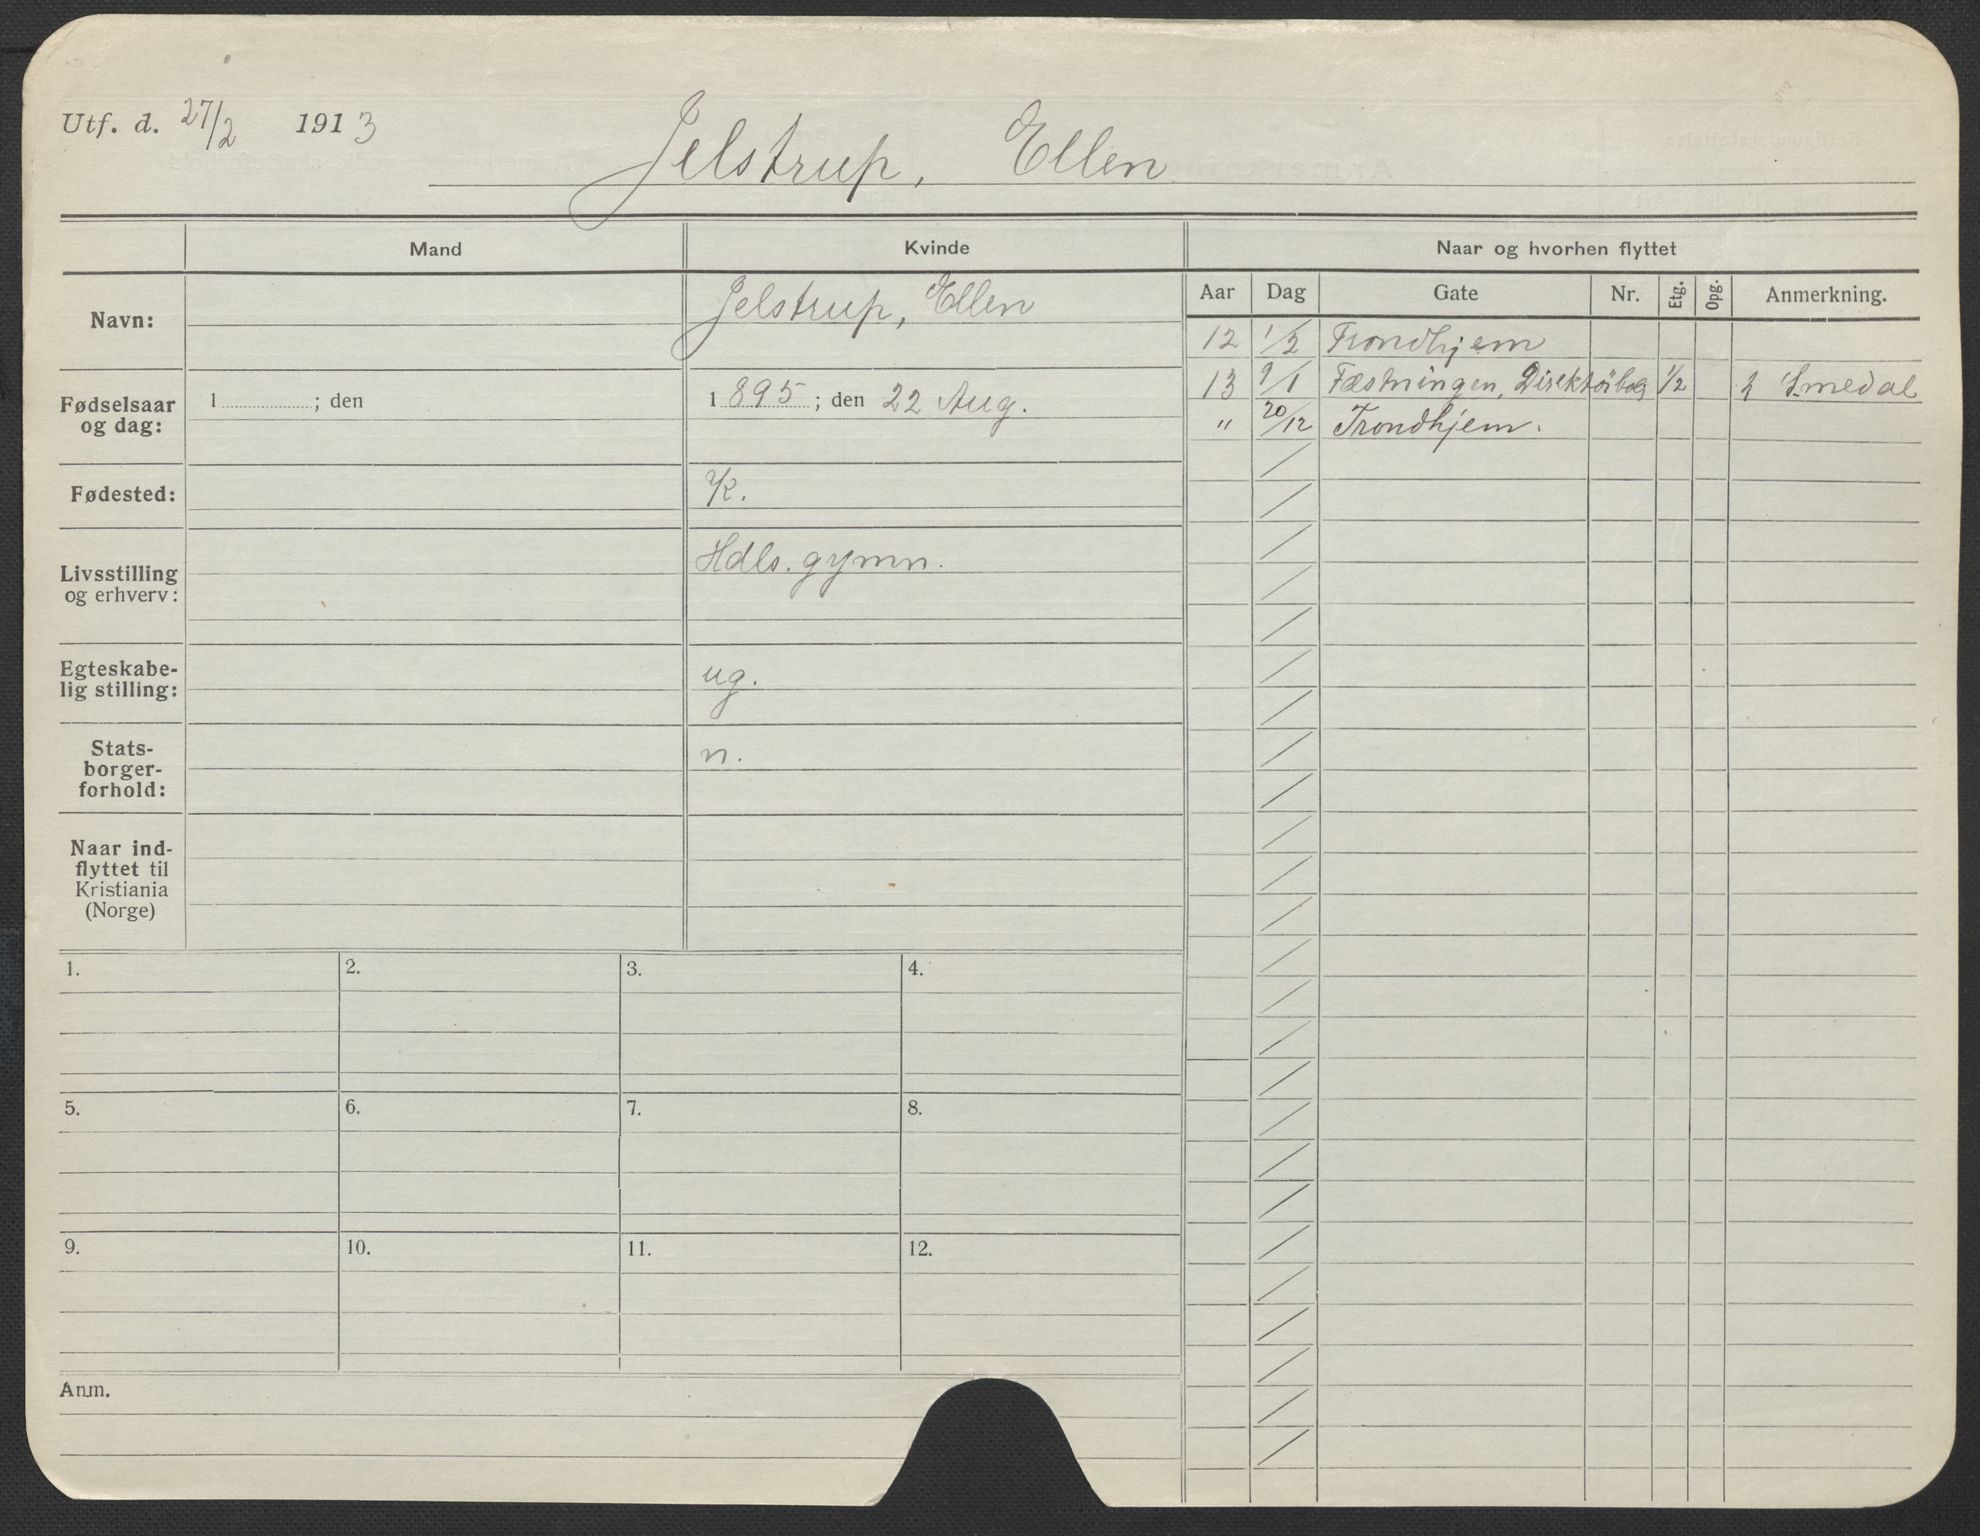 Utf. d. 27/2 1913
Jelstrup, Ellen
Mand Kvinde Naar og hvorhen flyttet
Aar Dag Gate Nr. Etg. Opg. Anmerkning.
Navn: Jelstrup, Ellen
12 1/2 Trondhjem
13 9/1 Fæstningen, 1/2 Smedal
" 20/12 Trondhjem.
Fødselsaar
og dag: 1 ; den 1895 ; den 22 Aug.
Fødested: K.
Livsstilling
og erhverv: Hdls. gymn.
Egteskabe-
lig stilling: ug.
Stats-
borger-
forhold: n.
Naar ind-
flyttet til
Kristiania
(Norge)
1. 2. 3. 4.
5. 6. 7. 8.
9. 10. 11. 12.
Anm.